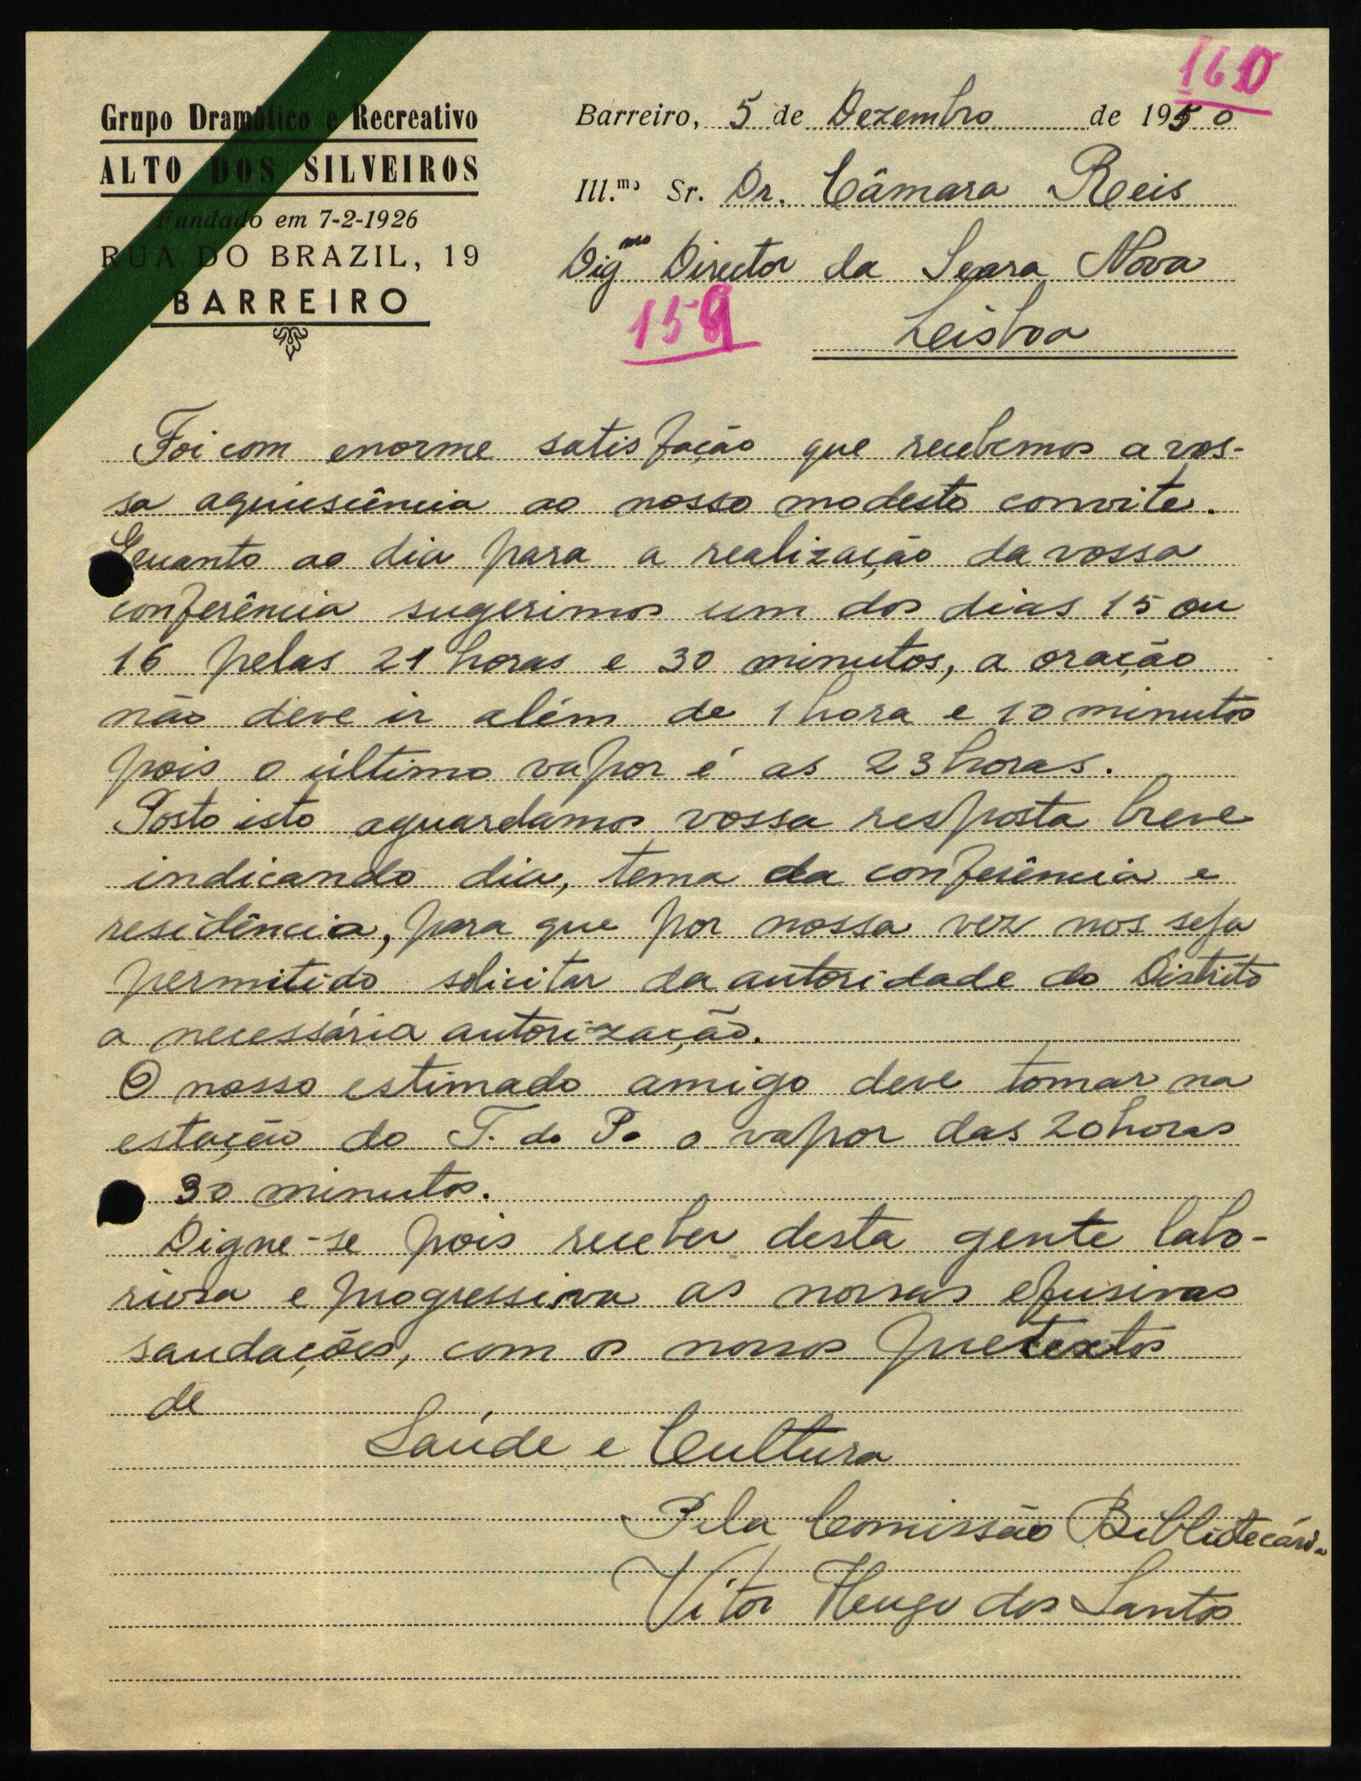 160
Grupo Dramático e Recreativo
ALTO DOS SILVEIROS
Fundado em 7-2-1926
RUA DO BRAZIL, 19
BARREIRO
Barreiro, 5 de Dezembro de 1950
Ill.mo Sr. Dr. Câmara Reis
Digmo Director da Seara Nova
159
Lisboa
Foi com enorme satisfação que recebemos a vos-
sa aquiescência ao nosso modesto convite.
Quanto ao dia para a realização da vossa
conferência sugerimos um dos dias 15 ou
16 pelas 21 horas e 30 minutos, a oração
não deve ir além de 1 hora e 10 minutos
pois o último vapor é as 23 horas.
Posto isto aguardamos vossa resposta breve
indicando dia, tema da conferência e
residência, para que por nossa vez nos seja
permitido solicitar da autoridade do Distrito
a necessária autorização.
O nosso estimado amigo deve tomar na
estação do T. do P. o vapor das 20 horas
30 minutos.
Digne-se pois receber desta gente labo-
riosa e progressiva as nossas efusivas
saudações, com os nossos pretextos
de
Saúde e Cultura
Pela Comissão Bibliotecária
Vitor Hugo dos Santos